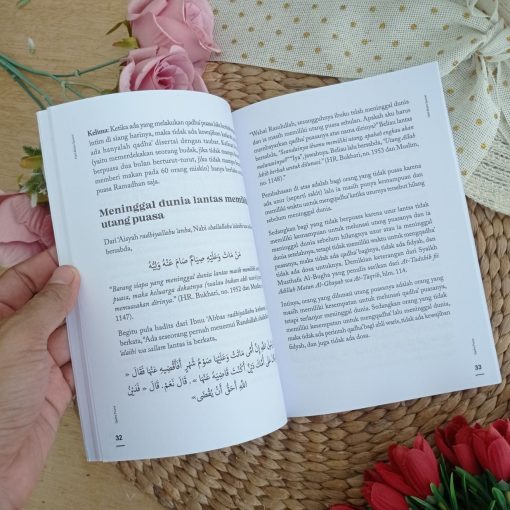 Kelima: Ketika ada yang melakukan qadha' puasa
intim di siang harinya, maka tidak ada kewajiban
ada hanyalah qadha' disertai dengan taubat. Kafarat
(yaitu memerdekakan seorang budak, jika tidak mampu
berpuasa dua bulan berturut-turut, jika tidak mampu
memberi makan pada 60 orang miskin) hanyalah
puasa Ramadhan saja.
Meninggal dunia lantas memiliki
utang puasa
Dari 'Aisyah radhiyallahu 'anha, Nabi shallallahu
bersabda,
مَنْ مَاتَ وَعَلَيْهِ صِيَامٌ صَامَ عَنْهُ وَلِيُّهُ
"Barang siapa yang meninggal dunia lantas masih memiliki
puasa, maka keluarga dekatnya
menunaikan dirinya." (HR. Bukhari, no. 1952 dan Muslim,
1147).
Begitu pula hadits dari Ibnu 'Abbas radhiyallahu
berkata, "Ada seorang pernah menemui Rasulullah
'alaihi wa sallam lantas ia berkata,
اللهِ إِنَّ أُمِّى مَاتَتْ وَعَلَيْهَا صَوْمُ شَهْرٍ أَفَأَقْضِيهِ عَنْهَا فَقَالَ «
أُمِّكَ دَيْنٌ أَكُنْتَ قَاضِيَهُ عَنْهَا ». قَالَ نَعَمْ. قَالَ « فَدَيْنُ
اللهِ أَحَقُّ أَنْ يُقْضَى»
32
"Wahai Rasulullah, sesungguhnya ibuku telah meninggal dunia
dan ia masih memiliki utang puasa sebulan. Apakah aku harus
bersabda,
"Iya", jawabnya. Beliau lantas berkata, "Utang Allah
lebih berhak untuk dilunasi." (HR. Bukhari, no. 1953 dan Muslim,
no. 1148)."
Pembahasan di atas adalah bagi orang yang tidak puasa karena
ada uzur (seperti sakit) lalu ia masih punya kemampuan dan
memiliki waktu untuk mengqadha'nya
sebelum meninggal dunia.
Sedangkan bagi yang tidak berpuasa karena uzur lantas tidak
memiliki kemampuan untuk melunasi utang puasanya dan ia
meninggal dunia sebelum hilangnya uzur atau ia meninggal
dunia
maka tidak ada qadha' baginya, tidak ada fidyah, dan
tidak ada dosa untuknya. Demikian keterangan dari Syaikh
Musthafa Al-Bugha yang penulis sarikan dari At-Tadzhib fii
Adillah Matan Al-Ghayah wa At-Taqrib, hlm. 114.
Intinya, orang yang dilunasi utang puasanya adalah orang yang
masih memiliki kesempatan untuk melunasi qadha' puasanya,
tetapi terlanjur meninggal dunia. Sedangkan orang yang tidak
memiliki kesempatan untuk mengqadha' lalu meninggal dunia,
maka tidak ada perintah qadha' bagi ahli waris, tidak ada kewajiban
fidyah, dan juga tidak ada dosa.
33